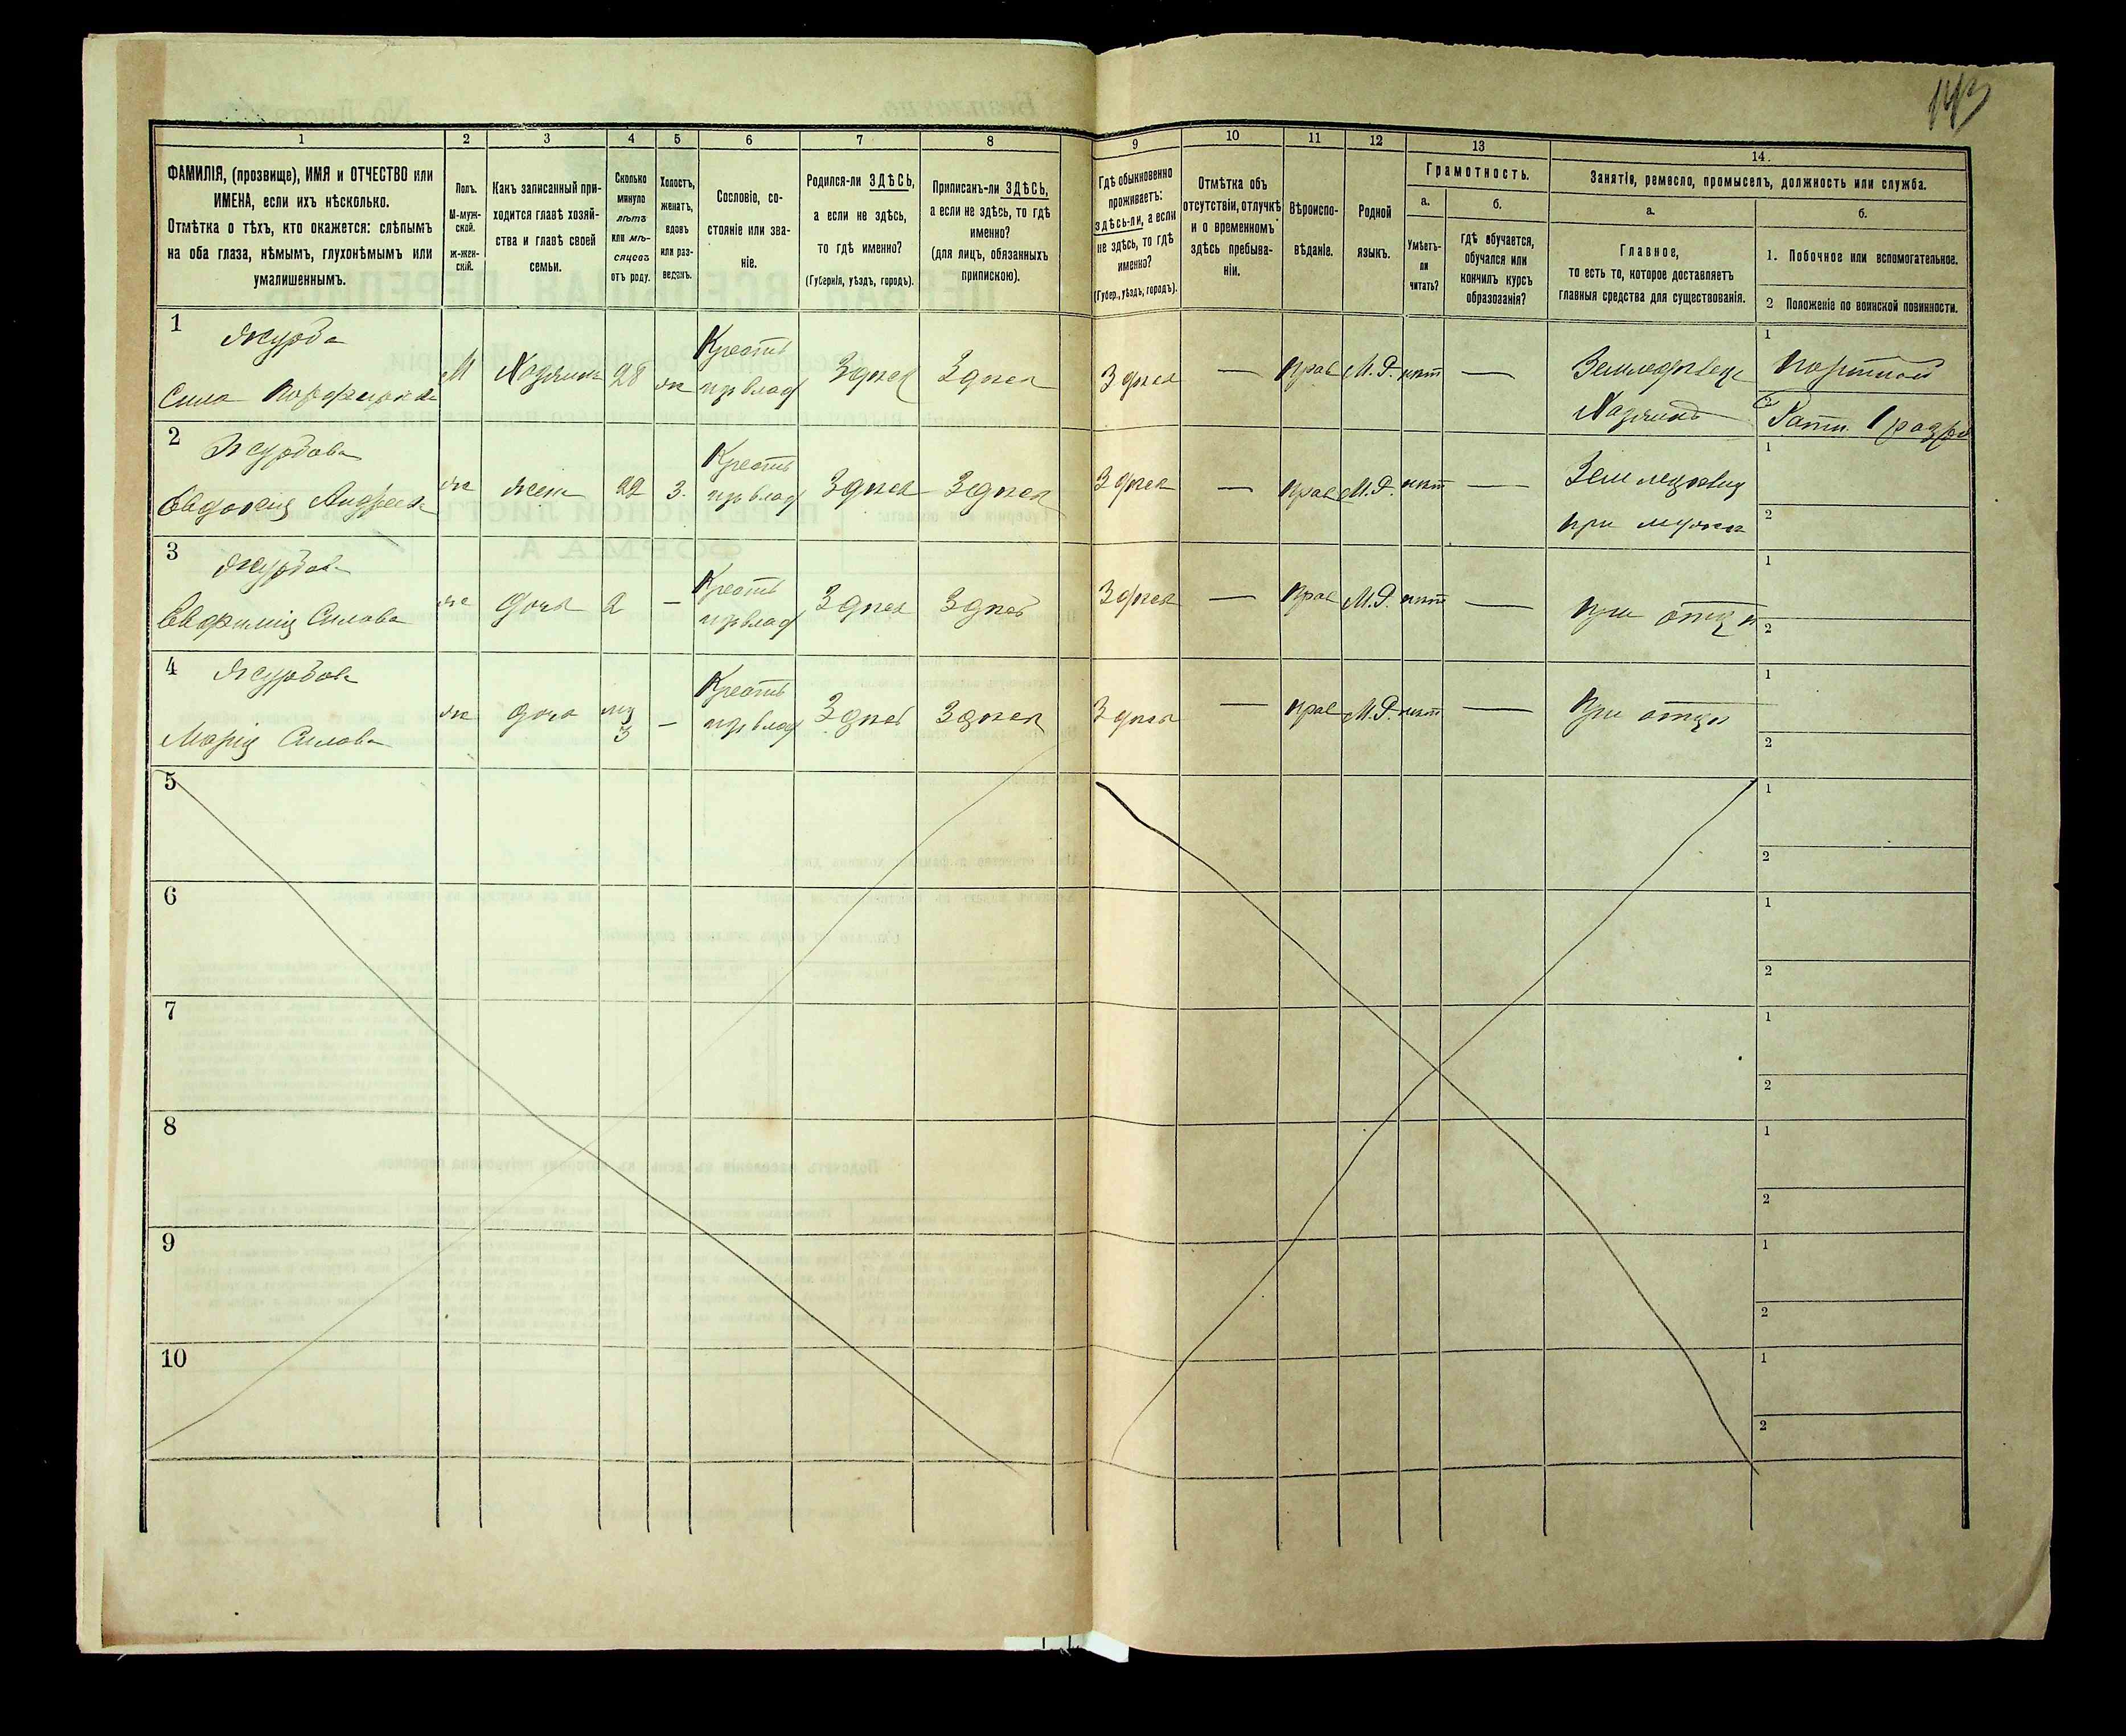 143
1
2
3
4
5
6
7
8
9
10
11
12
13
14.
ФАМИЛІЯ, (прозвище), ИМЯ и ОТЧЕСТВО или
ИМЕНА, если ихъ нѣсколько.
Отмѣтка о тѣхъ, кто окажется: слѣпымъ
на оба глаза, нѣмымъ, глухонѣмымъ или
умалишеннымъ.
Полъ.
М-муж-
ской.
ж-жен-
скій.
Какъ записанный при-
ходится главѣ хозяй-
ства и главѣ своей
семьи.
Сколько
минуло
лѣтъ
или мѣ-
сяцевъ
отъ роду.
Холостъ,
женатъ,
вдовъ
или раз-
веденъ.
Сословіе, со-
стояніе или зва-
ніе.
Родился-ли ЗДѢСЬ,
а если не здѣсь,
то гдѣ именно?
(Губернія, уѣздъ, городъ).
Приписанъ-ли ЗДѢСЬ,
а если не здѣсь, то гдѣ
именно?
(для лицъ, обязанныхъ
припискою).
Гдѣ обыкновенно
проживаетъ:
здѣсь-ли, а если
не здѣсь, то гдѣ
именно?
(Губер., уѣздъ, городъ).
Отмѣтка объ
отсутствіи, отлучкѣ
и о временномъ
здѣсь пребыва-
ніи.
Вѣроиспо-
вѣданіе.
Родной
языкъ.
Грамотность.
а.
Умѣетъ-
ли
читать?
б.
гдѣ обучается,
обучался или
кончилъ курсъ
образованія?
Занятія, ремесло, промыселъ, должность или служба.
а.
Главное,
то есть то, которое доставляетъ
главныя средства для существованія.
б.
1. Побочное или вспомогательное.
2 Положеніе по воинской повинности.
1
Сила
М
Хозяинъ
28
ж
Крест
Здѣсь
Здѣсь
Здѣсь
—
прав
М.Р.
нѣт
—
Хозяинъ
1
Портной
2
Ратн. 1 разр
2
Евдокия Андреева
ж
жена
22
З.
Крест
Здѣсь
Здѣсь
Здѣсь
—
прав
М.Р.
нѣт
—
при мужѣ
1
2
3
Силова
ж
дочь
2
—
Крест
Здѣсь
Здѣсь
Здѣсь
—
прав
М.Р.
нѣт
—
при отцѣ
1
2
4
Мария Силова
ж
дочь
3
—
Крест
Здѣсь
Здѣсь
Здѣсь
—
прав
М.Р.
нѣт
—
при отцѣ
1
2
5
1
2
6
1
2
7
1
2
8
1
2
9
1
2
10
1
2